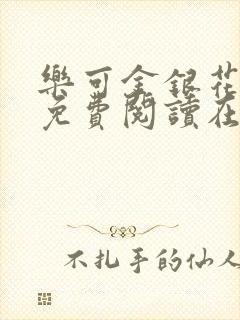 樂可金銀花
免費閱讀在
不扎手的仙人